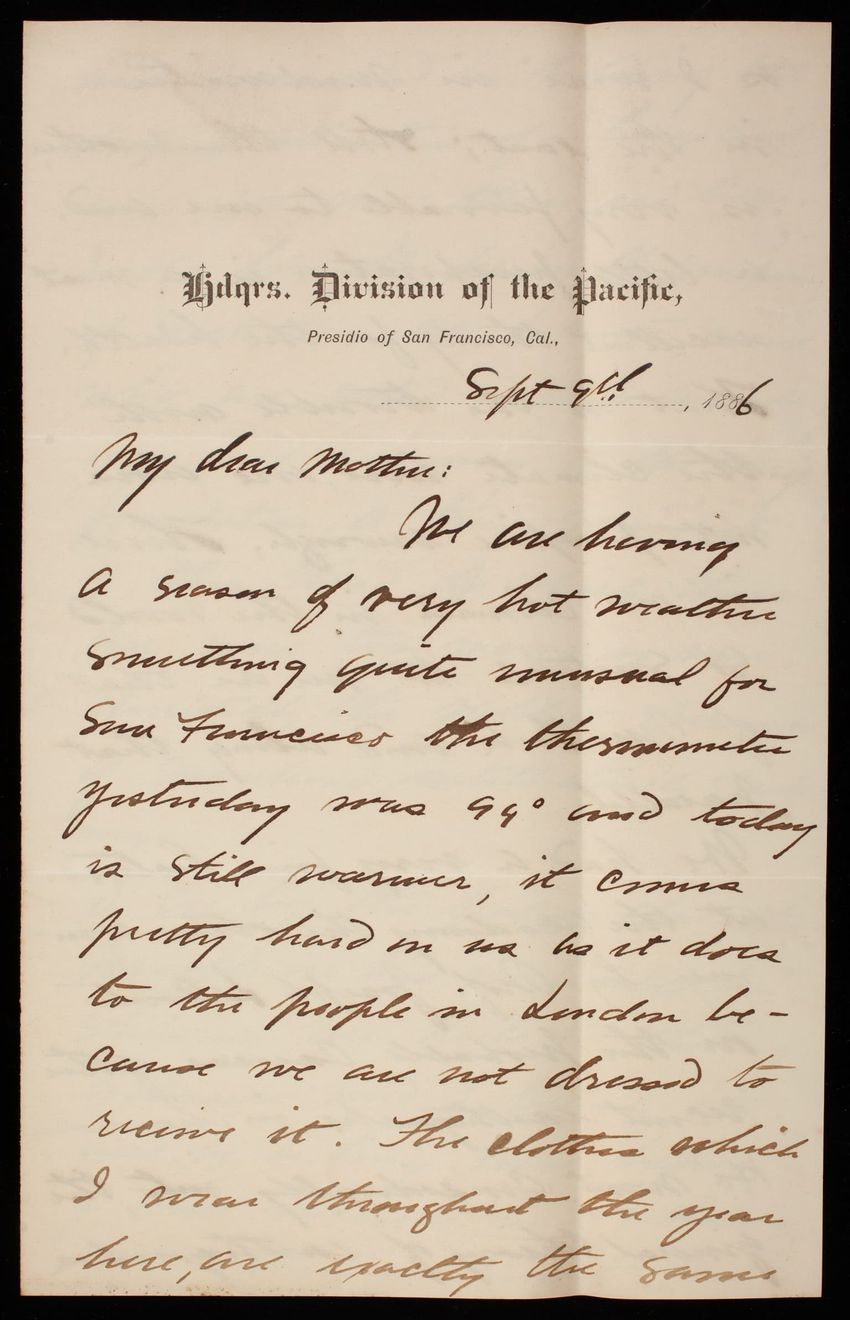 Hdqrs. Division of the Pacific,
Presidio of San Francisco, Cal.,
Sept 9th, 1886
My dear Mother:
We are having
a season of very hot weather
something quite unusual for
San Francisco the thermometer
yesterday was 99° and today
is still warmer, it comes
pretty hard on us as it does
to the people in London be-
cause we are not dressed to
receive it. The clothes which
I wear throughout the year
here, are exactly the same